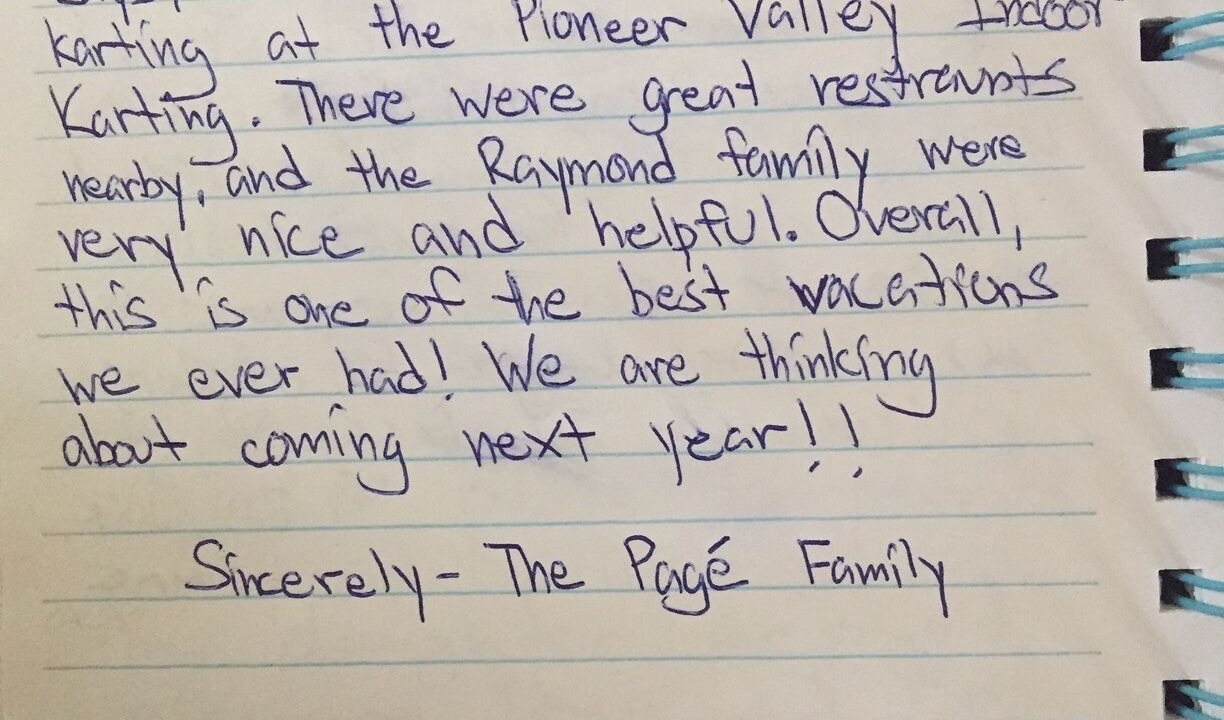 karting at the Pioneer Valley Indoor
Karting. There were great restraunts
nearby, and the Raymond family were
very nice and helpful. Overall,
this is one of the best vacations
we ever had! We are thinking
about coming next year!!
Sincerely- The Pagé Family